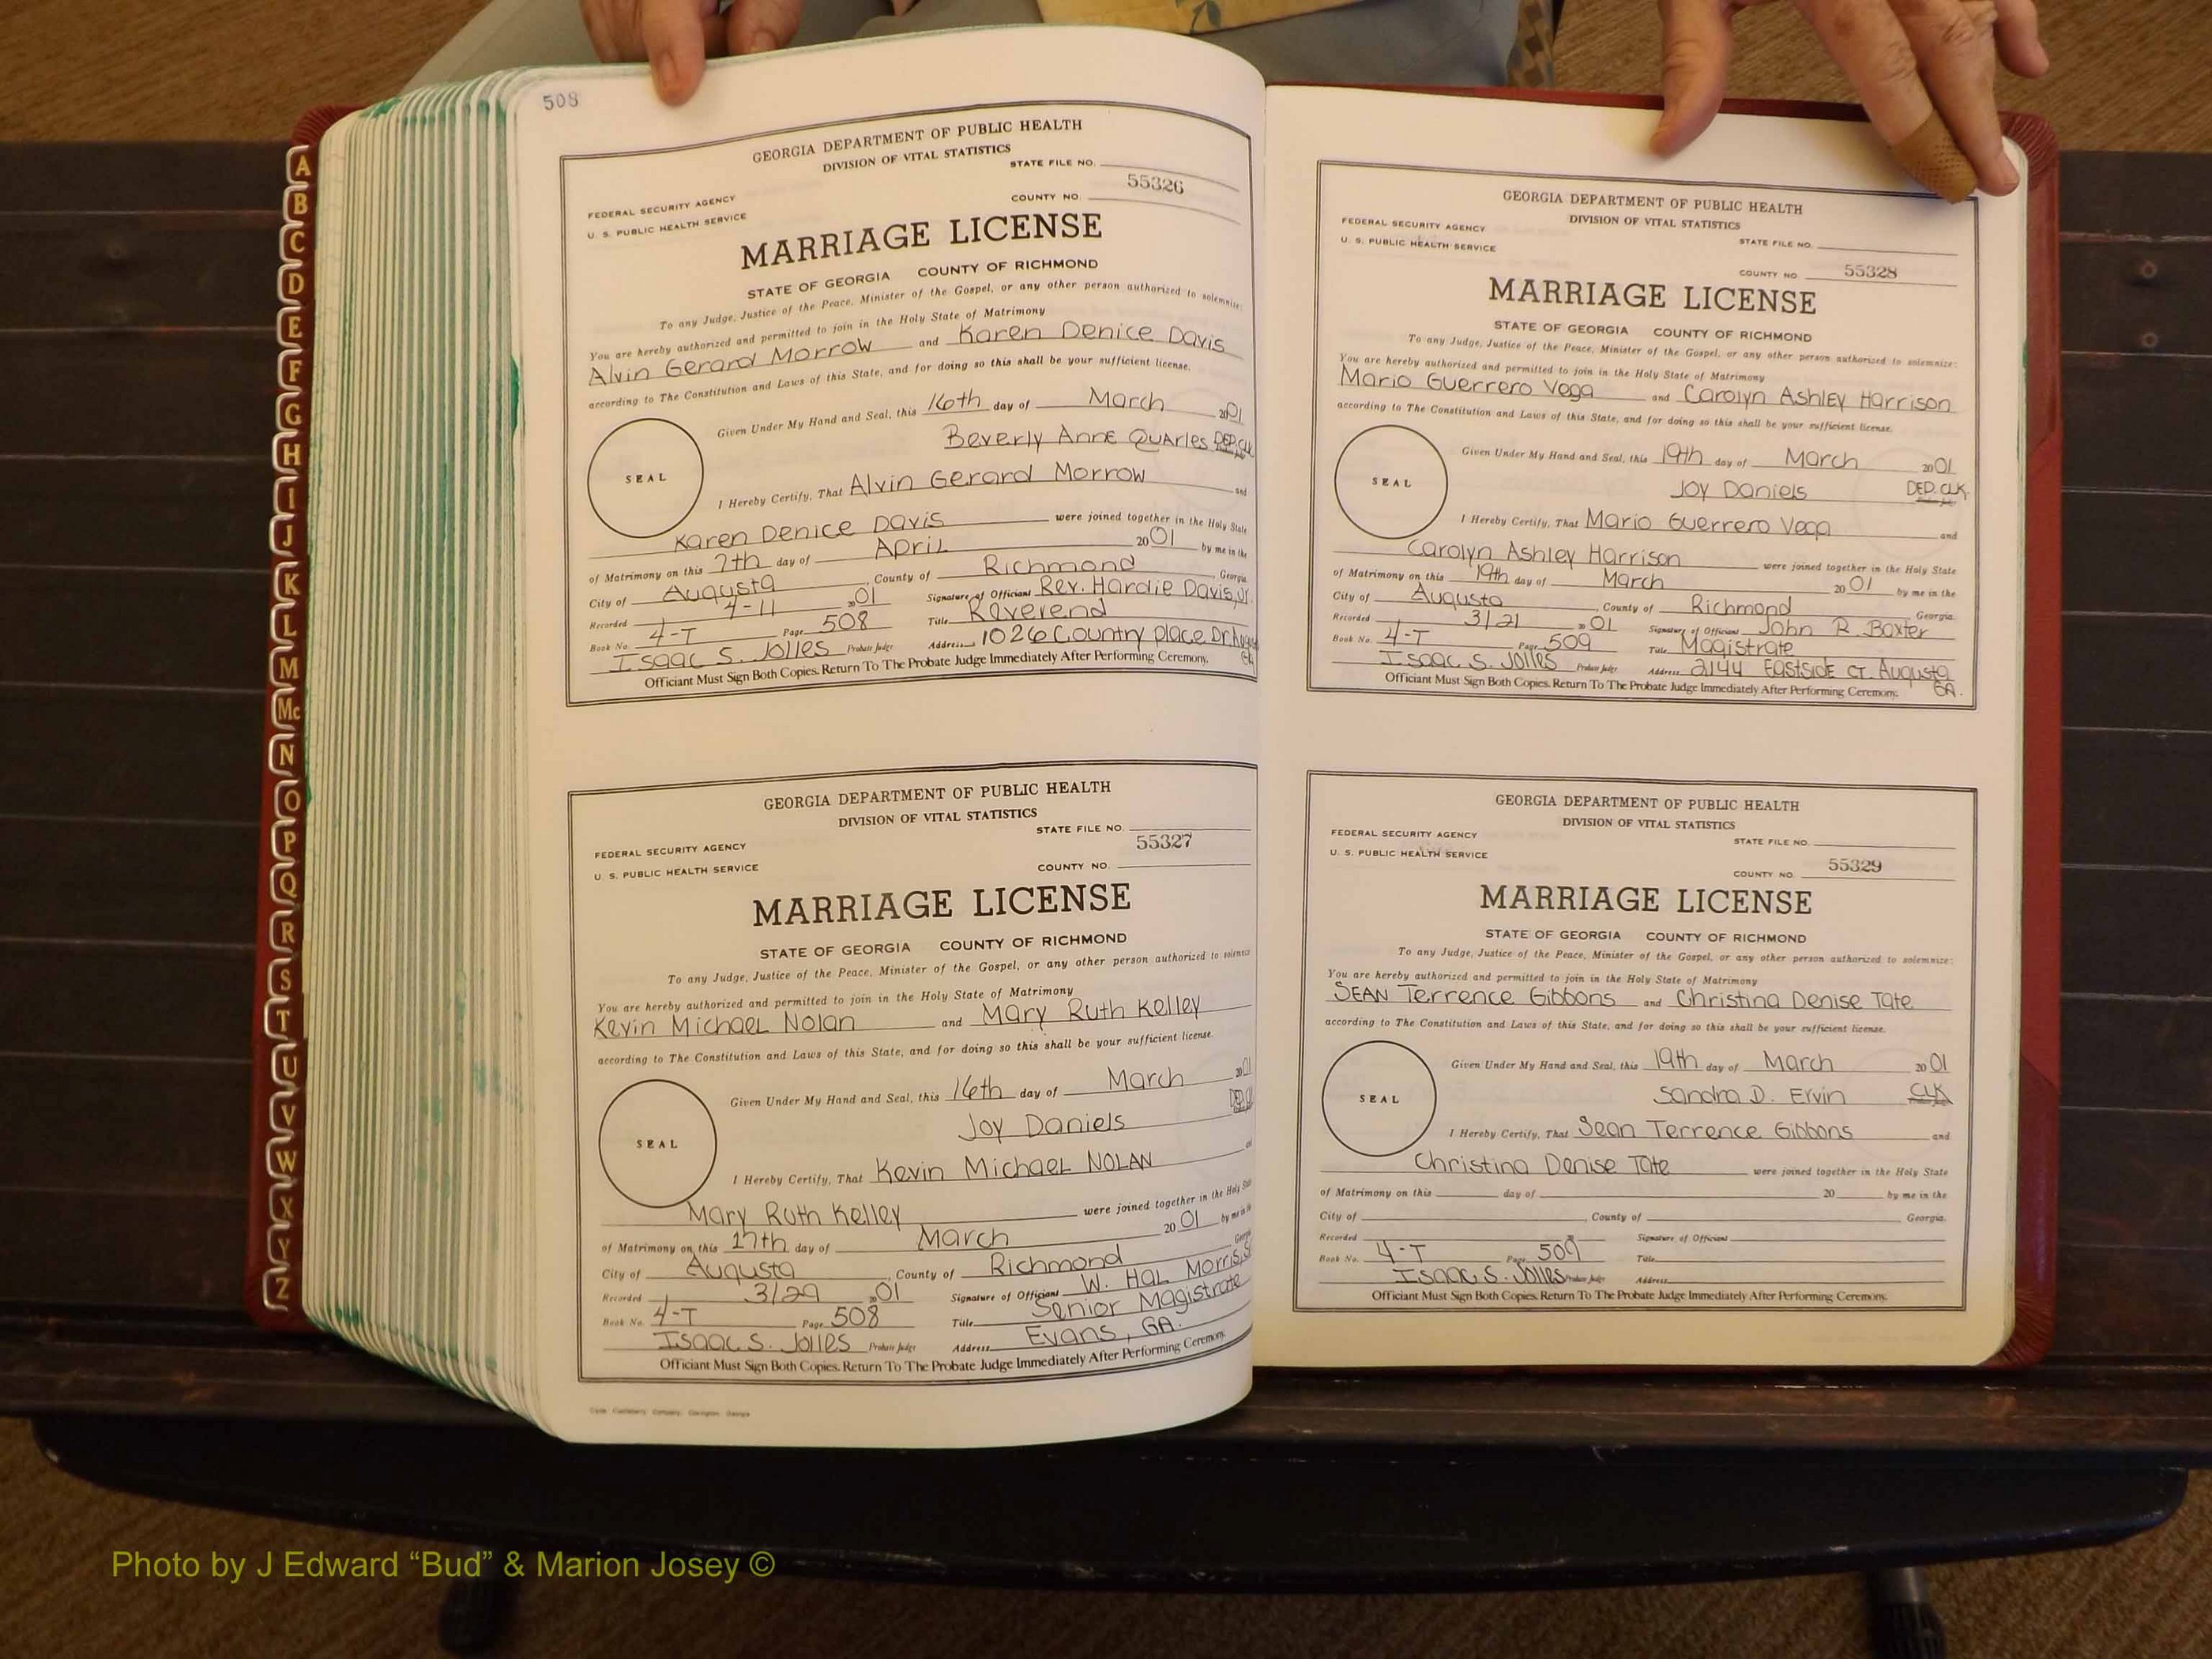 508
GEORGIA DEPARTMENT OF PUBLIC HEALTH
DIVISION OF VITAL STATISTICS
STATE FILE NO.
55326
FEDERAL SECURITY AGENCY
COUNTY NO.
U. S. PUBLIC HEALTH SERVICE
MARRIAGE LICENSE
STATE OF GEORGIA COUNTY OF RICHMOND
To any Judge, Justice of the Peace, Minister of the Gospel, or any other person authorized to solemnize:
You are hereby authorized and permitted to join in the Holy State of Matrimony
Alvin Gerard Morrow and Karen Denice Davis
according to The Constitution and Laws of this State, and for doing so this shall be your sufficient license.
Given Under My Hand and Seal, this 16th day of March 2001
Beverly Anne Quarles DEP. CLK
SEAL
I Hereby Certify, That Alvin Gerard Morrow and
Karen Denice Davis were joined together in the Holy State
of Matrimony on this 7th day of April 2001 by me in the
City of Augusta, County of Richmond, Georgia
Recorded 4-11 2001 Signature of Officiant Rev. Hardie Davis, Jr.
Book No. 4-T Page 508 Title Reverend
Isaac S. Jolles Probate Judge Address 1026 Country Place Dr. Augusta GA
Officiant Must Sign Both Copies. Return To The Probate Judge Immediately After Performing Ceremony.
GEORGIA DEPARTMENT OF PUBLIC HEALTH
DIVISION OF VITAL STATISTICS
STATE FILE NO.
55327
FEDERAL SECURITY AGENCY
COUNTY NO.
U. S. PUBLIC HEALTH SERVICE
MARRIAGE LICENSE
STATE OF GEORGIA COUNTY OF RICHMOND
To any Judge, Justice of the Peace, Minister of the Gospel, or any other person authorized to solemniz
You are hereby authorized and permitted to join in the Holy State of Matrimony
Kevin Michael Nolan and Mary Ruth Kelley
according to The Constitution and Laws of this State, and for doing so this shall be your sufficient license.
Given Under My Hand and Seal, this 16th day of March 2001
Joy Daniels DEP. CL
SEAL
I Hereby Certify, That Kevin Michael NOLAN and
Mary Ruth Kelley were joined together in the Holy State
of Matrimony on this 17th day of March 2001 by me in the
City of Augusta, County of Richmond Georgia
Recorded 3/29 2001 Signature of Officiant W. Hal Morris, Sr
Book No. 4-T Page 508 Title Senior Magistrate
Isaac S. Jolles Probate Judge Address Evans, GA.
Officiant Must Sign Both Copies. Return To The Probate Judge Immediately After Performing Ceremony.
Company, Covington, Georgia
GEORGIA DEPARTMENT OF PUBLIC HEALTH
DIVISION OF VITAL STATISTICS
FEDERAL SECURITY AGENCY
STATE FILE NO.
U. S. PUBLIC HEALTH SERVICE
COUNTY NO. 55328
MARRIAGE LICENSE
STATE OF GEORGIA COUNTY OF RICHMOND
To any Judge, Justice of the Peace, Minister of the Gospel, or any other person authorized to solemnize:
You are hereby authorized and permitted to join in the Holy State of Matrimony
Mario Guerrero Vega and Carolyn Ashley Harrison
according to The Constitution and Laws of this State, and for doing so this shall be your sufficient license.
Given Under My Hand and Seal, this 19th day of March 2001
Joy Daniels DEP. CLK.
SEAL
I Hereby Certify, That Mario Guerrero Vega and
Carolyn Ashley Harrison were joined together in the Holy State
of Matrimony on this 19th day of March 2001 by me in the
City of Augusta, County of Richmond Georgia.
Recorded 3/21 2001 Signature of Officiant John R. Baxter
Book No. 4-T Page 509 Title Magistrate
Isaac S. Jolles Probate Judge Address 2144 Eastside Ct. Augusta GA.
Officiant Must Sign Both Copies. Return To The Probate Judge Immediately After Performing Ceremony.
GEORGIA DEPARTMENT OF PUBLIC HEALTH
DIVISION OF VITAL STATISTICS
FEDERAL SECURITY AGENCY
STATE FILE NO.
U. S. PUBLIC HEALTH SERVICE
COUNTY NO. 55329
MARRIAGE LICENSE
STATE OF GEORGIA COUNTY OF RICHMOND
To any Judge, Justice of the Peace, Minister of the Gospel, or any other person authorized to solemnize:
You are hereby authorized and permitted to join in the Holy State of Matrimony
SEAN Terrence Gibbons and Christina Denise Tate
according to The Constitution and Laws of this State, and for doing so this shall be your sufficient license.
Given Under My Hand and Seal, this 19th day of March 2001
Sandra D. Ervin CLK
SEAL
I Hereby Certify, That Sean Terrence Gibbons and
Christina Denise Tate were joined together in the Holy State
of Matrimony on this day of 20 by me in the
City of , County of Georgia.
Recorded 20 Signature of Officiant
Book No. 4-T Page 509 Title
Isaac S. Jolles Probate Judge Address
Officiant Must Sign Both Copies. Return To The Probate Judge Immediately After Performing Ceremony.
A
B
C
D
E
F
G
H
I
J
K
L
M
Mc
N
O
P
Q
R
S
T
U
V
W
X
Y
Z
Photo by J Edward “Bud” & Marion Josey ©